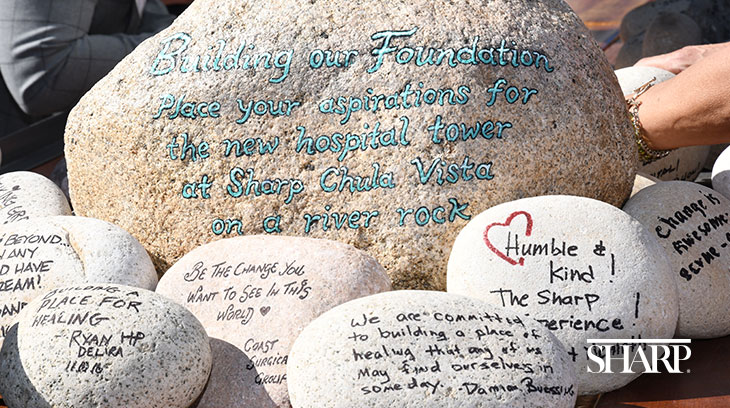 Building our Foundation
Place your aspirations for
the new hospital tower
at Sharp Chula Vista
on a river rock
BEYOND...
ANY
HAVE
DREAM!
AND
A PLACE FOR
HEALING
RYAN HP
BE THE CHANGE YOU
WANT TO SEE IN THIS
WORLD
COAST
SURGICAL
GROUP
We are committed
to building a place of
healing that any of us
may find ourselves in
someday.
Humble &
Kind!
The Sharp
Change is
Awesome
SHARP